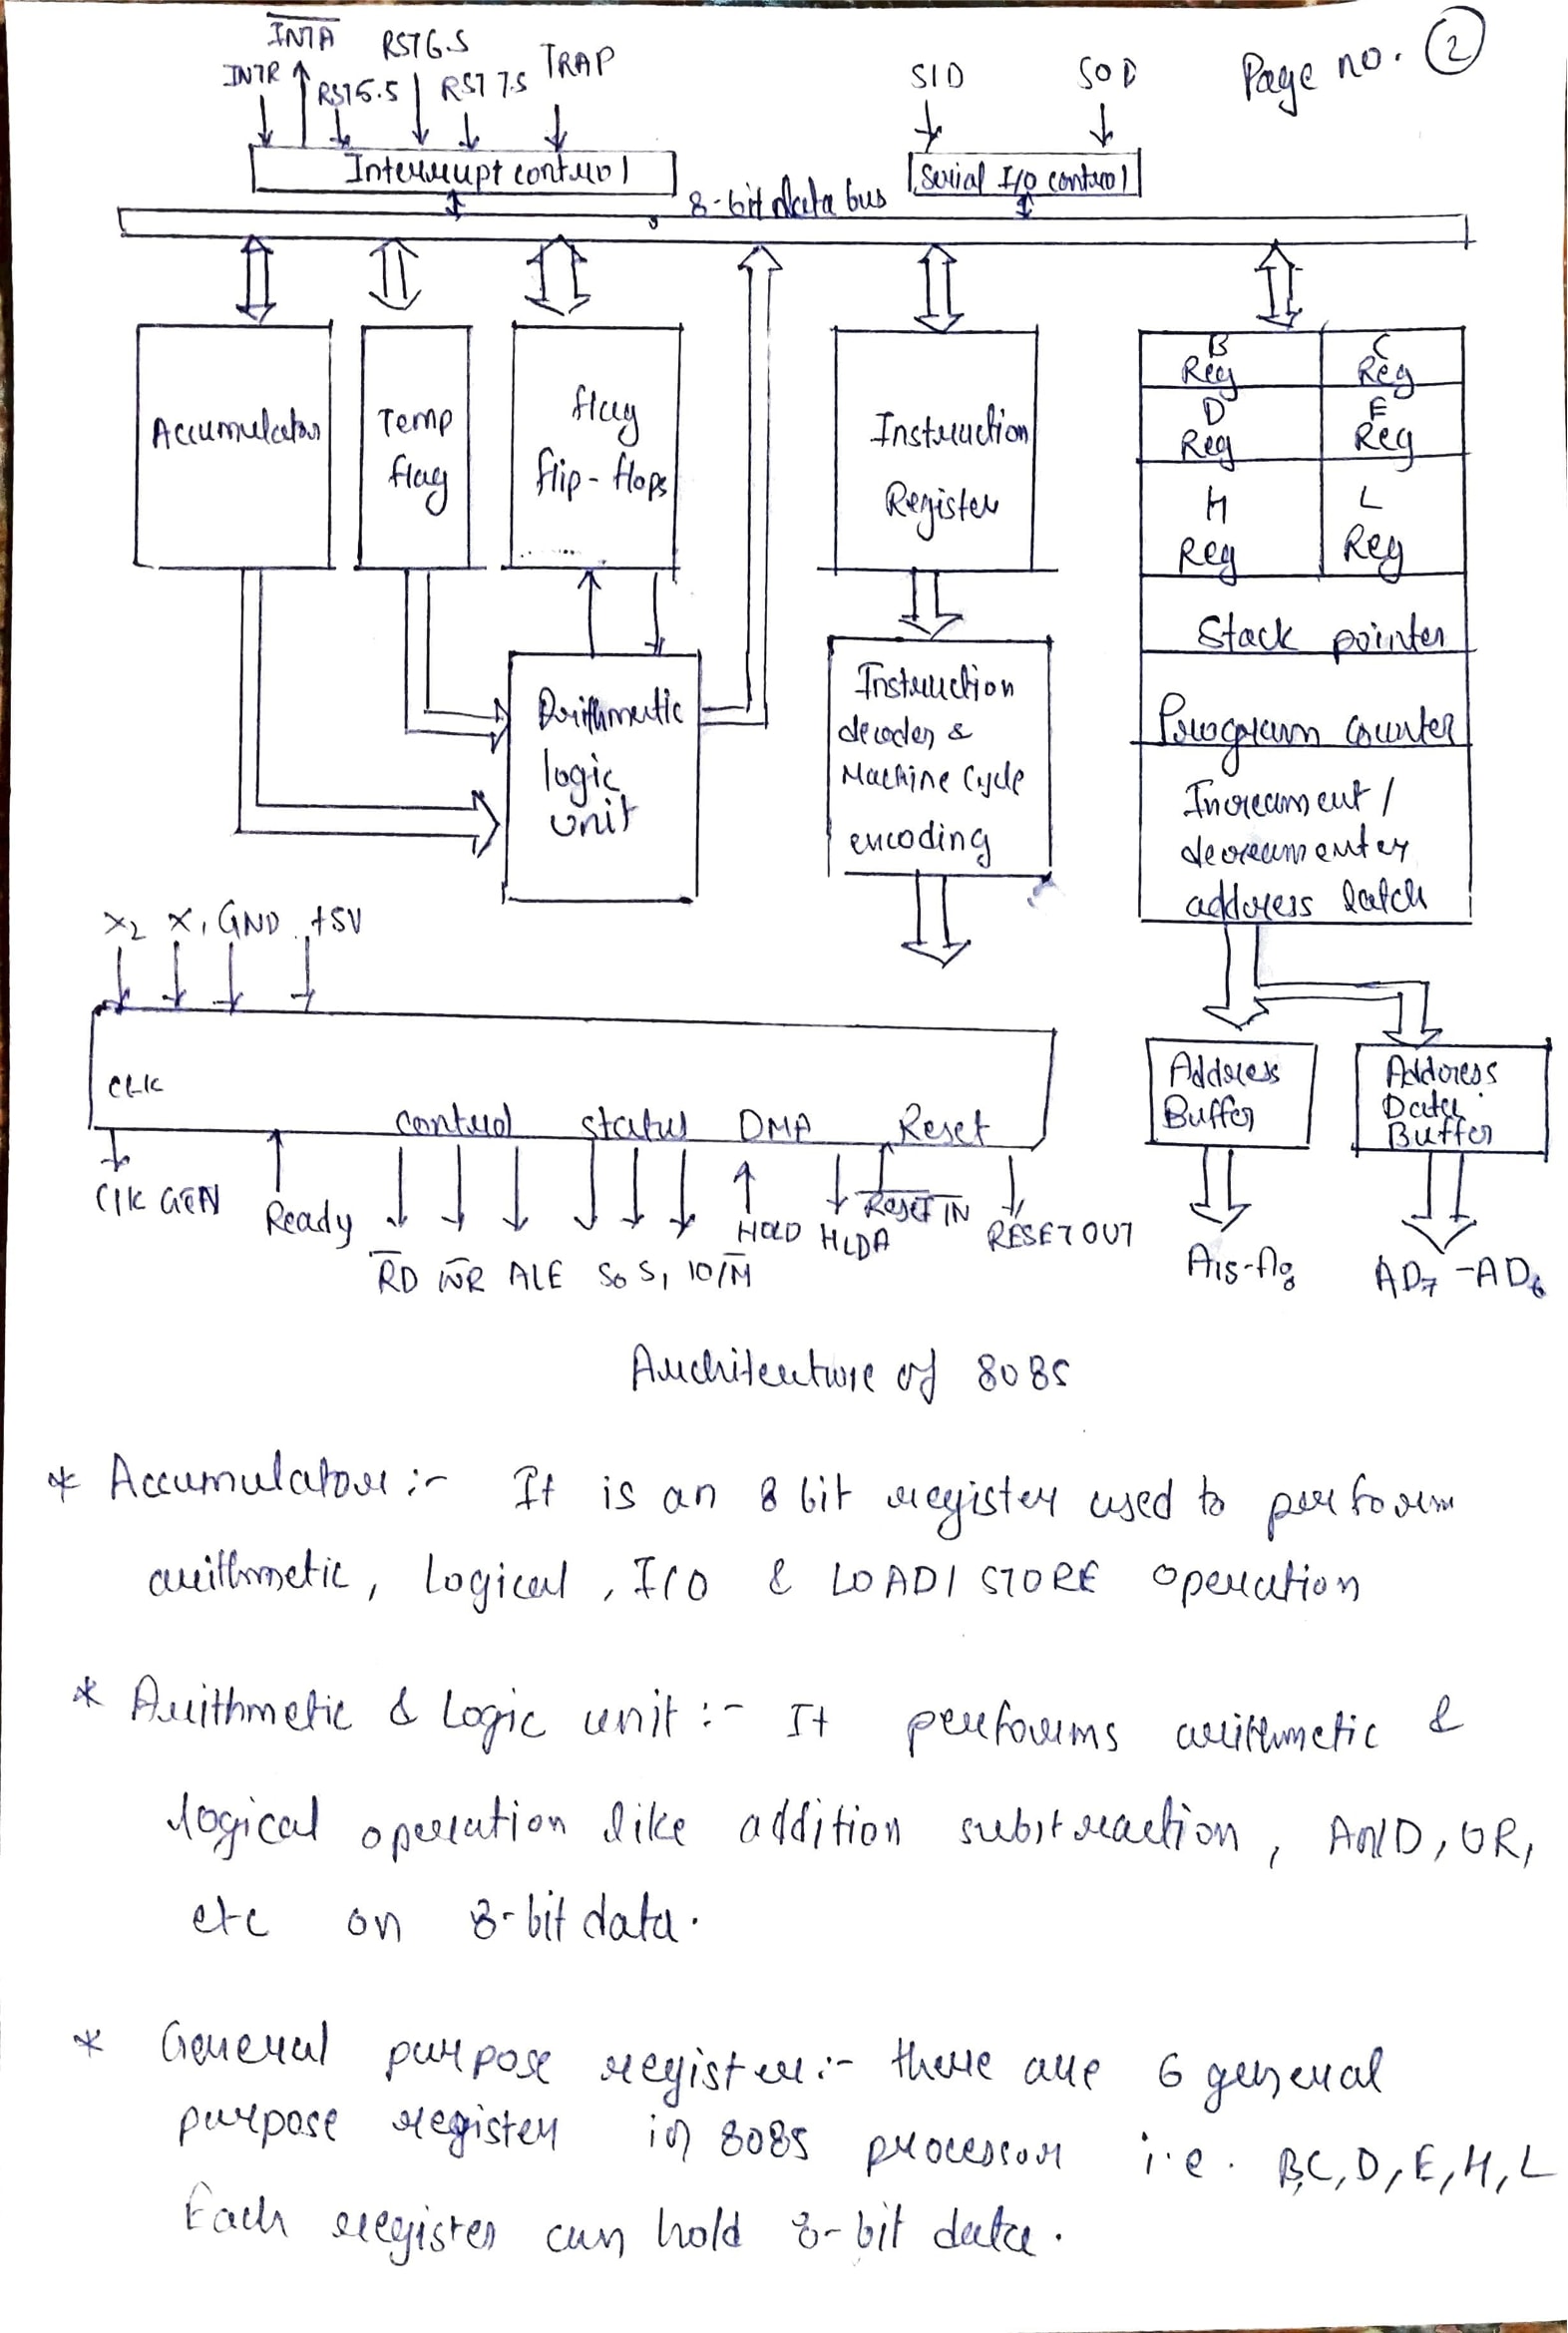 INTA
RST6.5
TRAP
INTR
RST5.5
RST 7.5
SID
SOD
Page no. 2
Interrupt control
Serial I/O control
8-bit data bus
Accumulator
Temp
flag
flag
flip-flops
Instruction
Register
B
Reg
C
Reg
D
Reg
E
Reg
H
Reg
L
Reg
Stack pointer
Program counter
Increament /
decreamenter
address latch
Arithmetic
logic
unit
Instruction
decoder &
Machine Cycle
encoding
X2 X1 GND +5V
CLK
control status DMA Reset
Clk GEN
Ready
RD WR ALE S0 S1 IO/M
HOLD HLDA
RESET IN
RESET OUT
Address
Buffer
Address
Data
Buffer
A15-A8
AD7-AD6
Architecture of 8085
* Accumulator :- It is an 8 bit register used to perform
arithmetic, logical, I/O & LOAD/STORE operation
* Arithmetic & logic unit :- It performs arithmetic &
logical operation like addition substraction, AND, OR,
etc on 8-bit data.
* General purpose register :- there are 6 general
purpose register in 8085 processor i.e. B,C,D,E,H,L
Each register can hold 8-bit data.